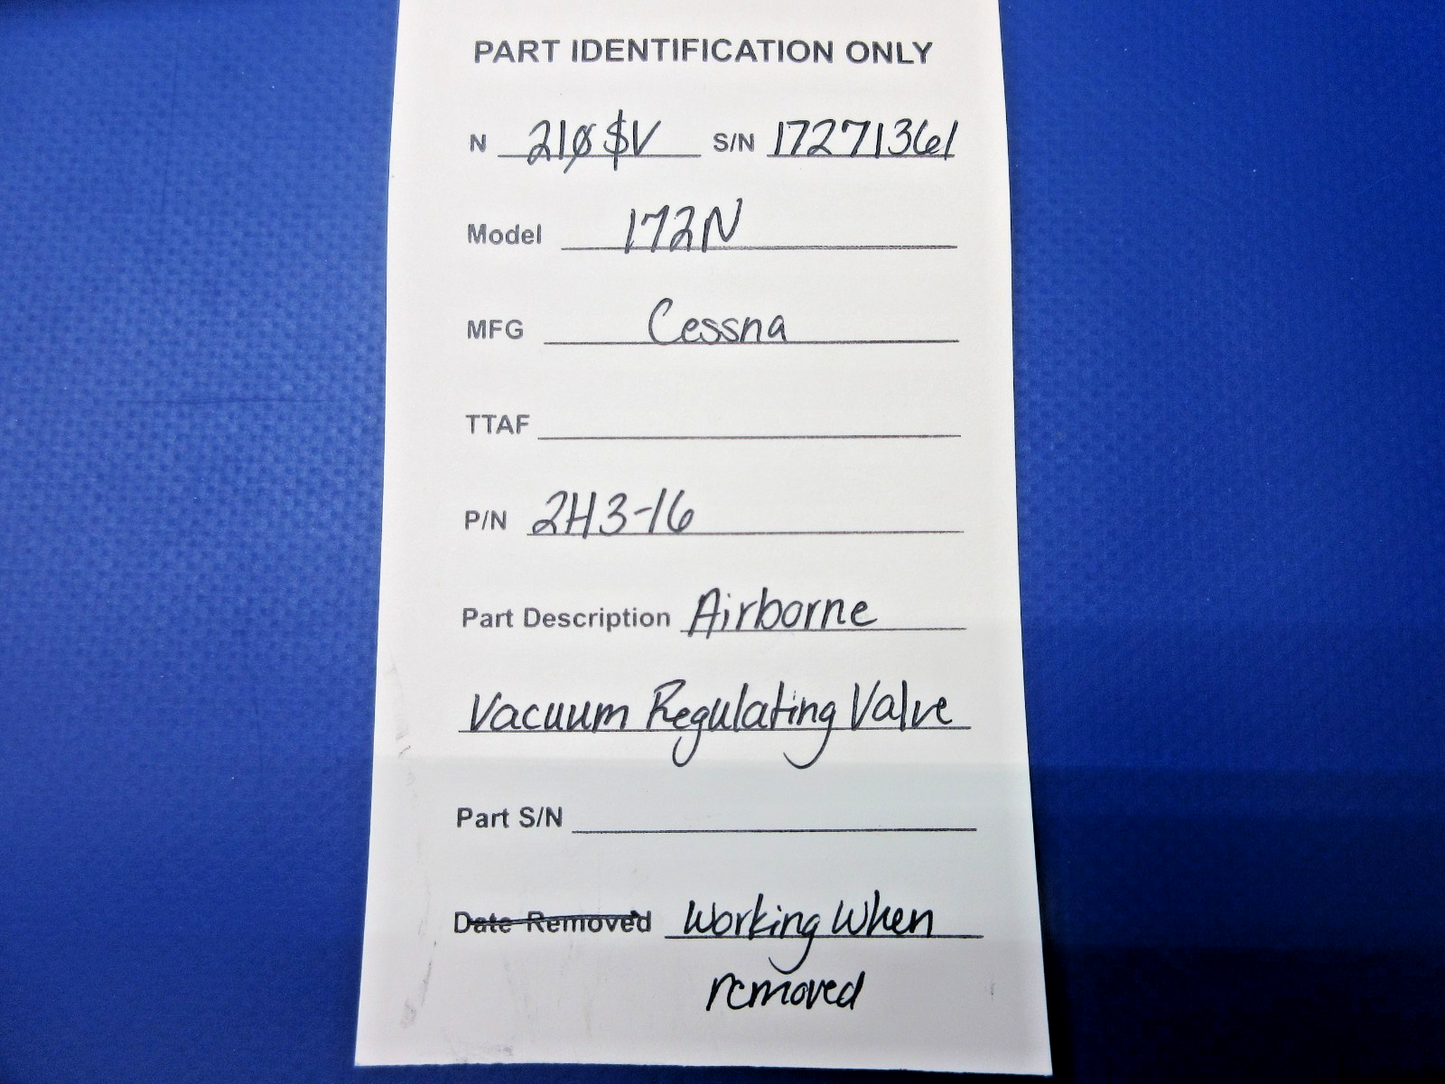 PART IDENTIFICATION ONLY
N 210$V S/N 17271361
Model 172N
MFG Cessna
TTAF
P/N 2H3-16
Part Description Airborne
Vacuum Regulating Valve
Part S/N
Date Removed Working When
removed